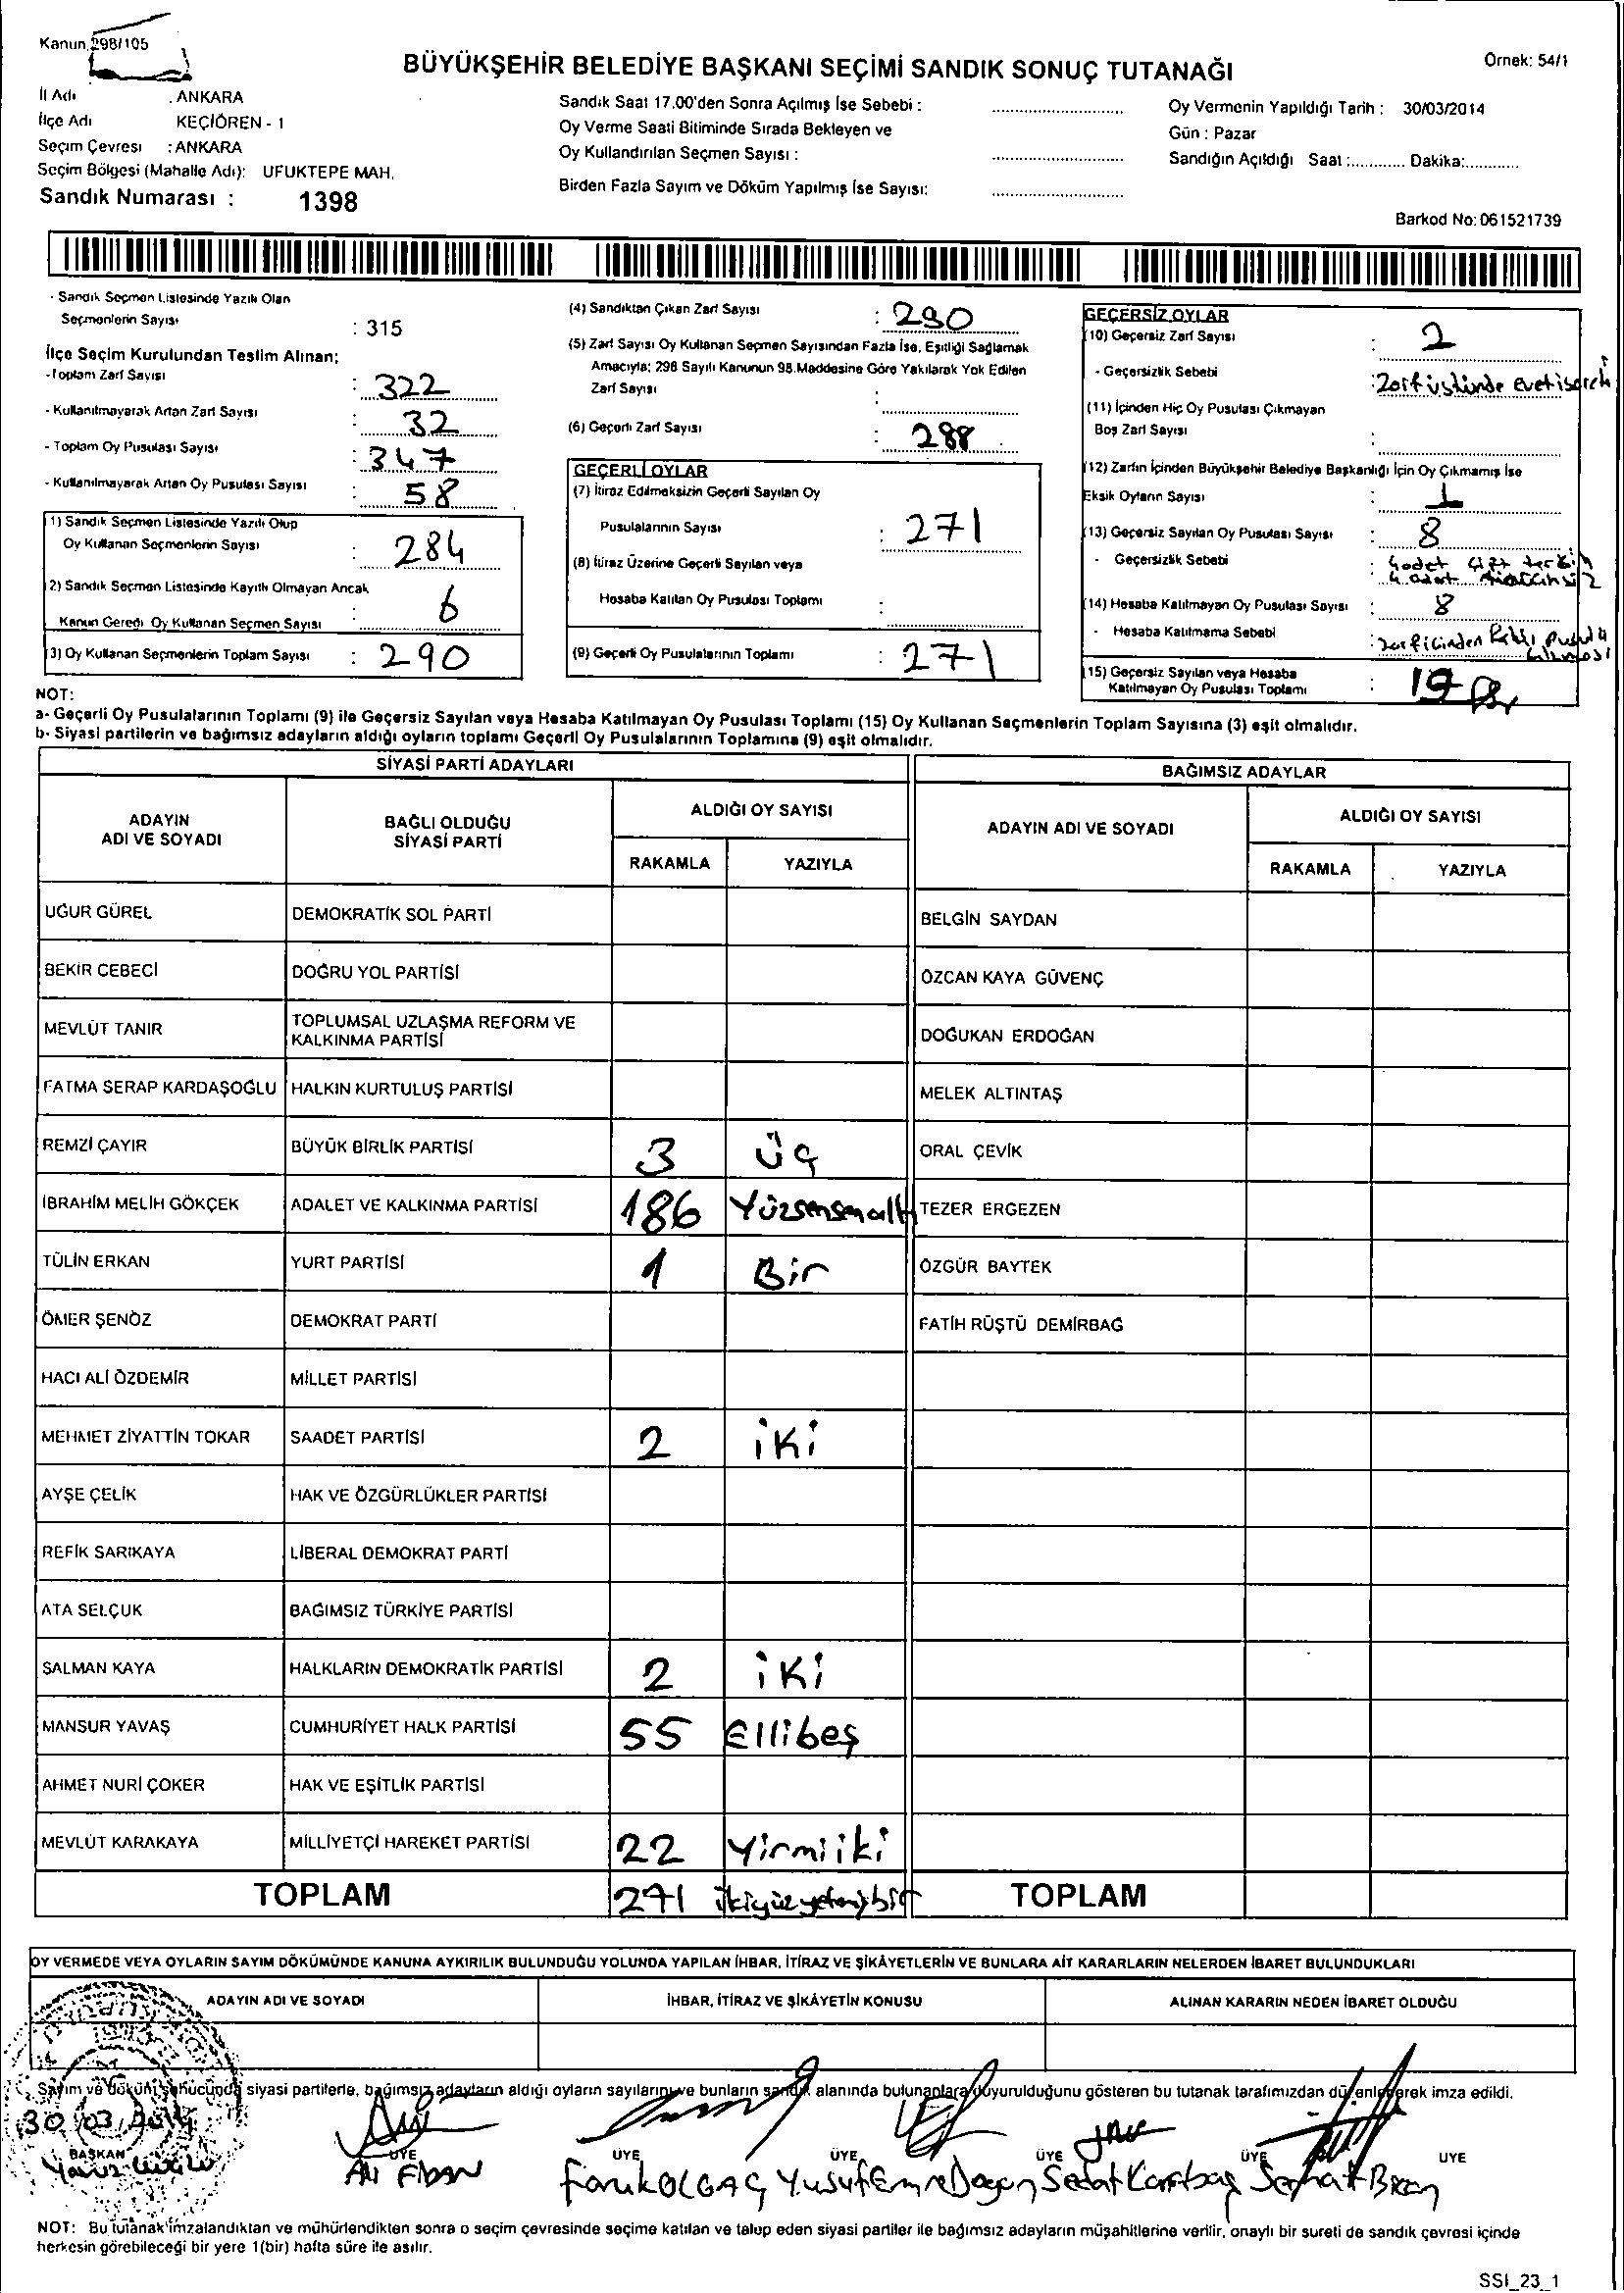 Kanun 298/105
BÜYÜKŞEHİR BELEDİYE BAŞKANI SEÇİMİ SANDIK SONUÇ TUTANAĞI
Örnek: 54/1
İl Adı : ANKARA
İlçe Adı KEÇİÖREN - 1
Seçim Çevresi : ANKARA
Seçim Bölgesi (Mahalle Adı): UFUKTEPE MAH.
Sandık Numarası : 1398
Sandık Saat 17.00'den Sonra Açılmış İse Sebebi :
Oy Verme Saati Bitiminde Sırada Bekleyen ve
Oy Kullandırılan Seçmen Sayısı :
Birden Fazla Sayım ve Döküm Yapılmış İse Sayısı:
Oy Vermenin Yapıldığı Tarih : 30/03/2014
Gün : Pazar
Sandığın Açıldığı Saat :............ Dakika:............
Barkod No: 061521739
- Sandık Seçmen Listesinde Yazılı Olan
Seçmenlerin Sayısı : 315
İlçe Seçim Kurulundan Teslim Alınan;
- Toplam Zarf Sayısı : 322
- Kullanılmayarak Artan Zarf Sayısı : 32
- Toplam Oy Pusulası Sayısı : 347
- Kullanılmayarak Artan Oy Pusulası Sayısı : 58
1) Sandık Seçmen Listesinde Yazılı Olup
Oy Kullanan Seçmenlerin Sayısı : 284
2) Sandık Seçmen Listesinde Kayıtlı Olmayan Ancak
Kanun Gereği Oy Kullanan Seçmen Sayısı : 6
3) Oy Kullanan Seçmenlerin Toplam Sayısı : 290
(4) Sandıktan Çıkan Zarf Sayısı : 290
(5) Zarf Sayısı Oy Kullanan Seçmen Sayısından Fazla İse, Eşitliği Sağlamak
Amacıyla; 298 Sayılı Kanunun 98.Maddesine Göre Yakılarak Yok Edilen
Zarf Sayısı :
(6) Geçerli Zarf Sayısı : 288
GEÇERLİ OYLAR
(7) İtiraz Edilmeksizin Geçerli Sayılan Oy
Pusulalarının Sayısı : 271
(8) İtiraz Üzerine Geçerli Sayılan veya
Hesaba Katılan Oy Pusulası Toplamı :
(9) Geçerli Oy Pusulalarının Toplamı : 271
GEÇERSİZ OYLAR
(10) Geçersiz Zarf Sayısı : 2
- Geçersizlik Sebebi : Zarf üstünde evet işareti
(11) İçinden Hiç Oy Pusulası Çıkmayan
Boş Zarf Sayısı :
(12) Zarfın İçinden Büyükşehir Belediye Başkanlığı İçin Oy Çıkmamış İse
Eksik Oyların Sayısı : 1
(13) Geçersiz Sayılan Oy Pusulası Sayısı : 8
- Geçersizlik Sebebi : 4 adet çift tercih
4 adet
(14) Hesaba Katılmayan Oy Pusulası Sayısı : 8
- Hesaba Katılmama Sebebi : zarf içinden farklı pusula çıkması
(15) Geçersiz Sayılan veya Hesaba
Katılmayan Oy Pusulası Toplamı : 19
NOT:
a- Geçerli Oy Pusulalarının Toplamı (9) ile Geçersiz Sayılan veya Hesaba Katılmayan Oy Pusulası Toplamı (15) Oy Kullanan Seçmenlerin Toplam Sayısına (3) eşit olmalıdır.
b- Siyasi partilerin ve bağımsız adayların aldığı oyların toplamı Geçerli Oy Pusulalarının Toplamına (9) eşit olmalıdır.
SİYASİ PARTİ ADAYLARI
BAĞIMSIZ ADAYLAR
ADAYIN ADI VE SOYADI
BAĞLI OLDUĞU SİYASİ PARTİ
ALDIĞI OY SAYISI
RAKAMLA YAZIYLA
ADAYIN ADI VE SOYADI
ALDIĞI OY SAYISI
RAKAMLA YAZIYLA
UĞUR GÜREL DEMOKRATİK SOL PARTİ BELGİN SAYDAN
BEKİR CEBECİ DOĞRU YOL PARTİSİ ÖZCAN KAYA GÜVENÇ
MEVLÜT TANIR TOPLUMSAL UZLAŞMA REFORM VE KALKINMA PARTİSİ DOĞUKAN ERDOĞAN
FATMA SERAP KARDAŞOĞLU HALKIN KURTULUŞ PARTİSİ MELEK ALTINTAŞ
REMZİ ÇAYIR BÜYÜK BİRLİK PARTİSİ 3 üç ORAL ÇEVİK
İBRAHİM MELİH GÖKÇEK ADALET VE KALKINMA PARTİSİ 186 Yüzsensenaltı TEZER ERGEZEN
TÜLİN ERKAN YURT PARTİSİ 1 Bir ÖZGÜR BAYTEK
ÖMER ŞENÖZ DEMOKRAT PARTİ FATİH RÜŞTÜ DEMİRBAĞ
HACI ALİ ÖZDEMİR MİLLET PARTİSİ
MEHMET ZİYATTİN TOKAR SAADET PARTİSİ 2 iki
AYŞE ÇELİK HAK VE ÖZGÜRLÜKLER PARTİSİ
REFİK SARIKAYA LİBERAL DEMOKRAT PARTİ
ATA SELÇUK BAĞIMSIZ TÜRKİYE PARTİSİ
SALMAN KAYA HALKLARIN DEMOKRATİK PARTİSİ 2 iki
MANSUR YAVAŞ CUMHURİYET HALK PARTİSİ 55 Ellibeş
AHMET NURİ ÇOKER HAK VE EŞİTLİK PARTİSİ
MEVLÜT KARAKAYA MİLLİYETÇİ HAREKET PARTİSİ 22 Yirmiiki
TOPLAM 271 ikiyüzyetmişbir TOPLAM
OY VERMEDE VEYA OYLARIN SAYIM DÖKÜMÜNDE KANUNA AYKIRILIK BULUNDUĞU YOLUNDA YAPILAN İHBAR, İTİRAZ VE ŞİKÂYETLERİN VE BUNLARA AİT KARARLARIN NELERDEN İBARET BULUNDUKLARI
ADAYIN ADI VE SOYADI İHBAR, İTİRAZ VE ŞİKÂYETİN KONUSU ALINAN KARARIN NEDEN İBARET OLDUĞU
Sayım ve döküm sonucunda siyasi partilerle, bağımsız adayların aldığı oyların sayılarını ve bunların sandık alanında bulunanlara duyurulduğunu gösteren bu tutanak tarafımızdan düzenlenerek imza edildi.
30/03/2014
BAŞKAN ÜYE ÜYE ÜYE ÜYE ÜYE ÜYE
Yavuz Ali Fidan Faruk OLGAÇ Yusuf Emre Doğan Sedat Serhat
NOT: Bu tutanak imzalandıktan ve mühürlendikten sonra o seçim çevresinde seçime katılan ve talep eden siyasi partiler ile bağımsız adayların müşahitlerine verilir, onaylı bir sureti de sandık çevresi içinde
herkesin görebileceği bir yere 1(bir) hafta süre ile asılır.
SSI_23_1